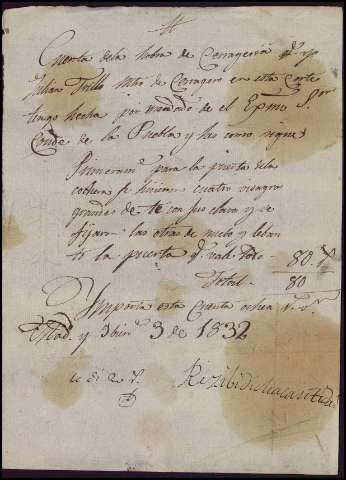 Cuenta dela hobra de Cerrageria q.e yo
Julian Trillo Mtro de Cerragero en esta Corte
tengo hecha por mandado de el Exmo S.or
Conde de la Puebla y hes como sigue
Primeram.te para la puerta dela
cochera se hicieron cuatro visagras
grandes de te con sus clavos y se
fijaron las otras de nuebo y leban
te la puerta q.e vale todo - 80 r.s
Total - 80
Importa esta Cuenta ochenta r.s v.n
Mad. y 3 de 1832
Rezibi dicha cantidad